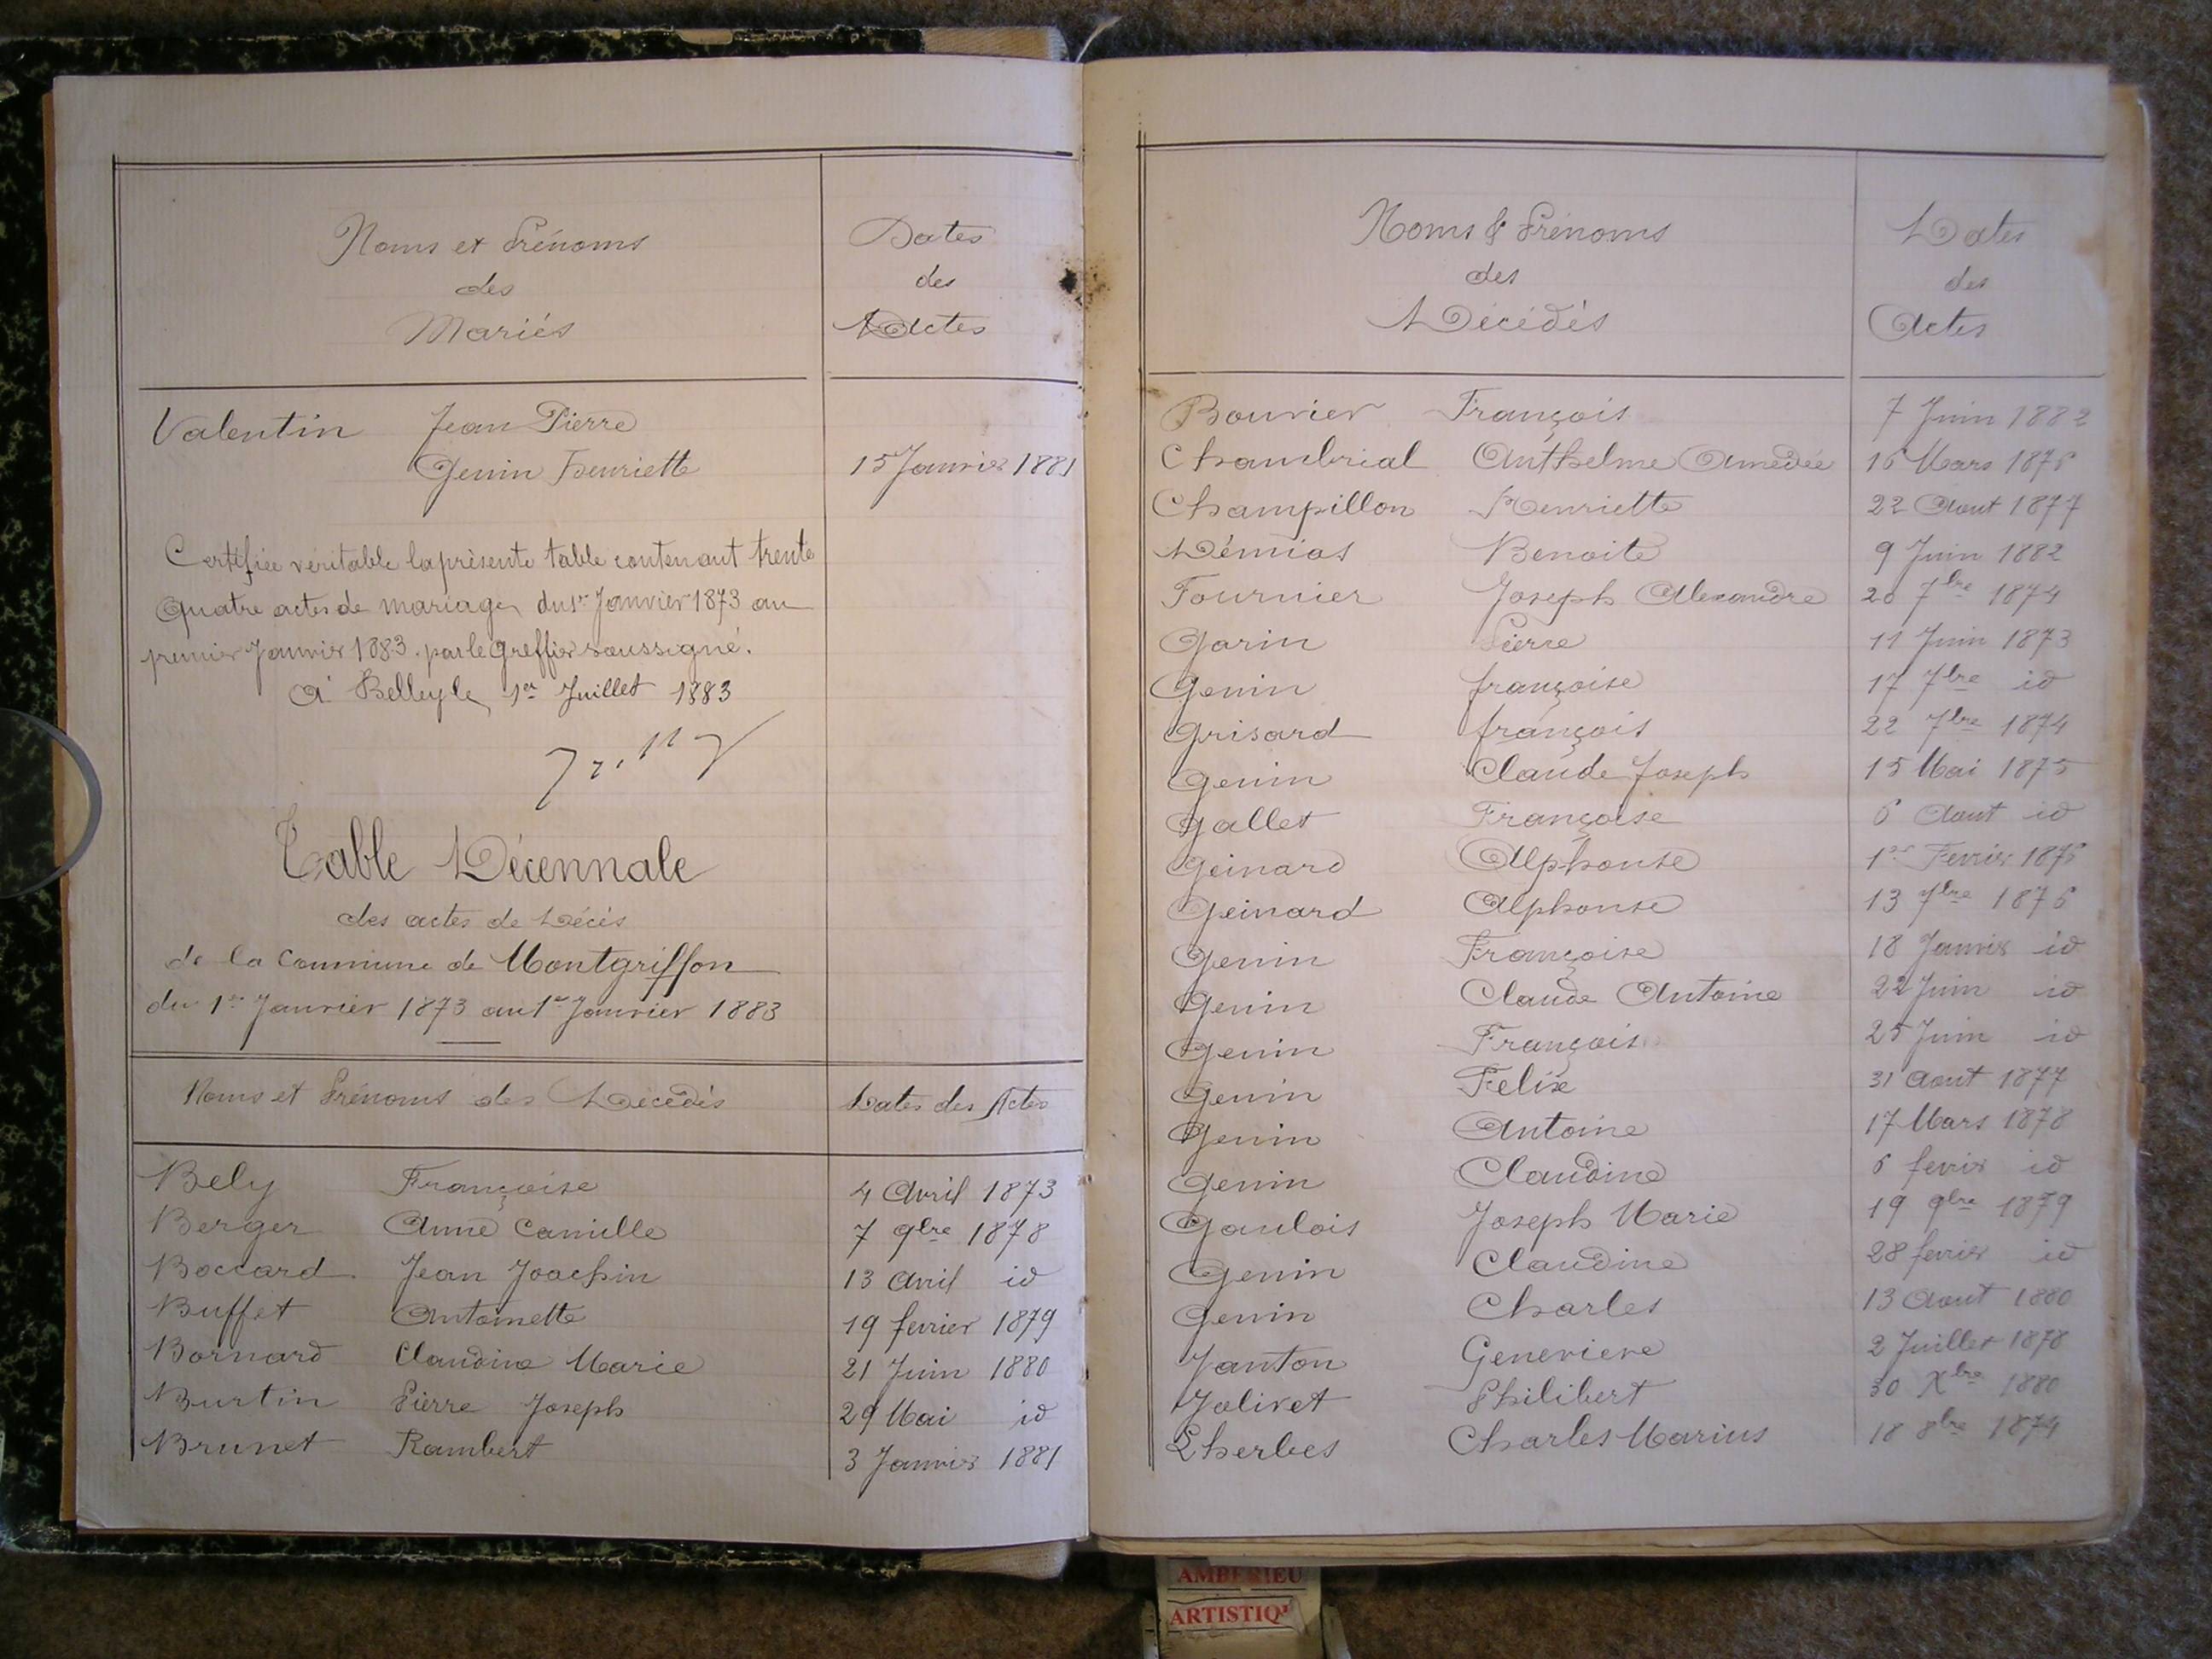 Noms et Prénoms
des
Mariés
Dates
des
Actes
Valentin Jean Pierre
Genin Henriette 15 Janvier 1881
Certifiée véritable la présente table contenant trente
quatre actes de mariages du 1er Janvier 1873 au
premier Janvier 1883 par le Greffier soussigné.
A Belley le 1er Juillet 1883
Table Décennale
des actes de Décès
de la Commune de Montgriffon
du 1er Janvier 1873 au 1er Janvier 1883
Noms et Prénoms des Décédés Dates des Actes
Bely Françoise 4 Avril 1873
Berger Anne Camille 7 9bre 1878
Boccard Jean Joachin 13 Avril id
Buffet Antoinette 19 fevrier 1879
Bornard Claudine Marie 21 Juin 1880
Burtin Pierre Joseph 29 Mai id
Brunet Rambert 3 Janvier 1881
Noms & Prénoms
des
Décédés
Dates
des
Actes
Bouvier François 7 Juin 1882
Chambrial Anthelme Amédée 16 Mars 1876
Champillon Henriette 22 Aout 1877
Démias Benoite 9 Juin 1882
Fournier Joseph Alexandre 20 7bre 1874
Garin Pierre 11 Juin 1873
Genin françoise 17 7bre id
Grisard françois 22 7bre 1874
Genin Claude Joseph 15 Mai 1875
Gallet Françoise 6 Aout id
Geinard Alphonse 1er Fevrier 1876
Geinard Alphonse 13 7bre 1876
Genin Françoise 18 Janvier id
Genin Claude Antoine 22 Juin id
Genin François 25 Juin id
Genin Felix 31 Aout 1877
Genin Antoine 17 Mars 1878
Genin Claudine 6 fevrier id
Gaulois Joseph Marie 19 9bre 1879
Genin Claudine 28 fevrier id
Genin Charles 13 Aout 1880
Janton Genevieve 2 Juillet 1878
Jolivet Philibert 30 Xbre 1880
Lherbes Charles Marius 18 8bre 1874
AMBERIEU
ARTISTIQ